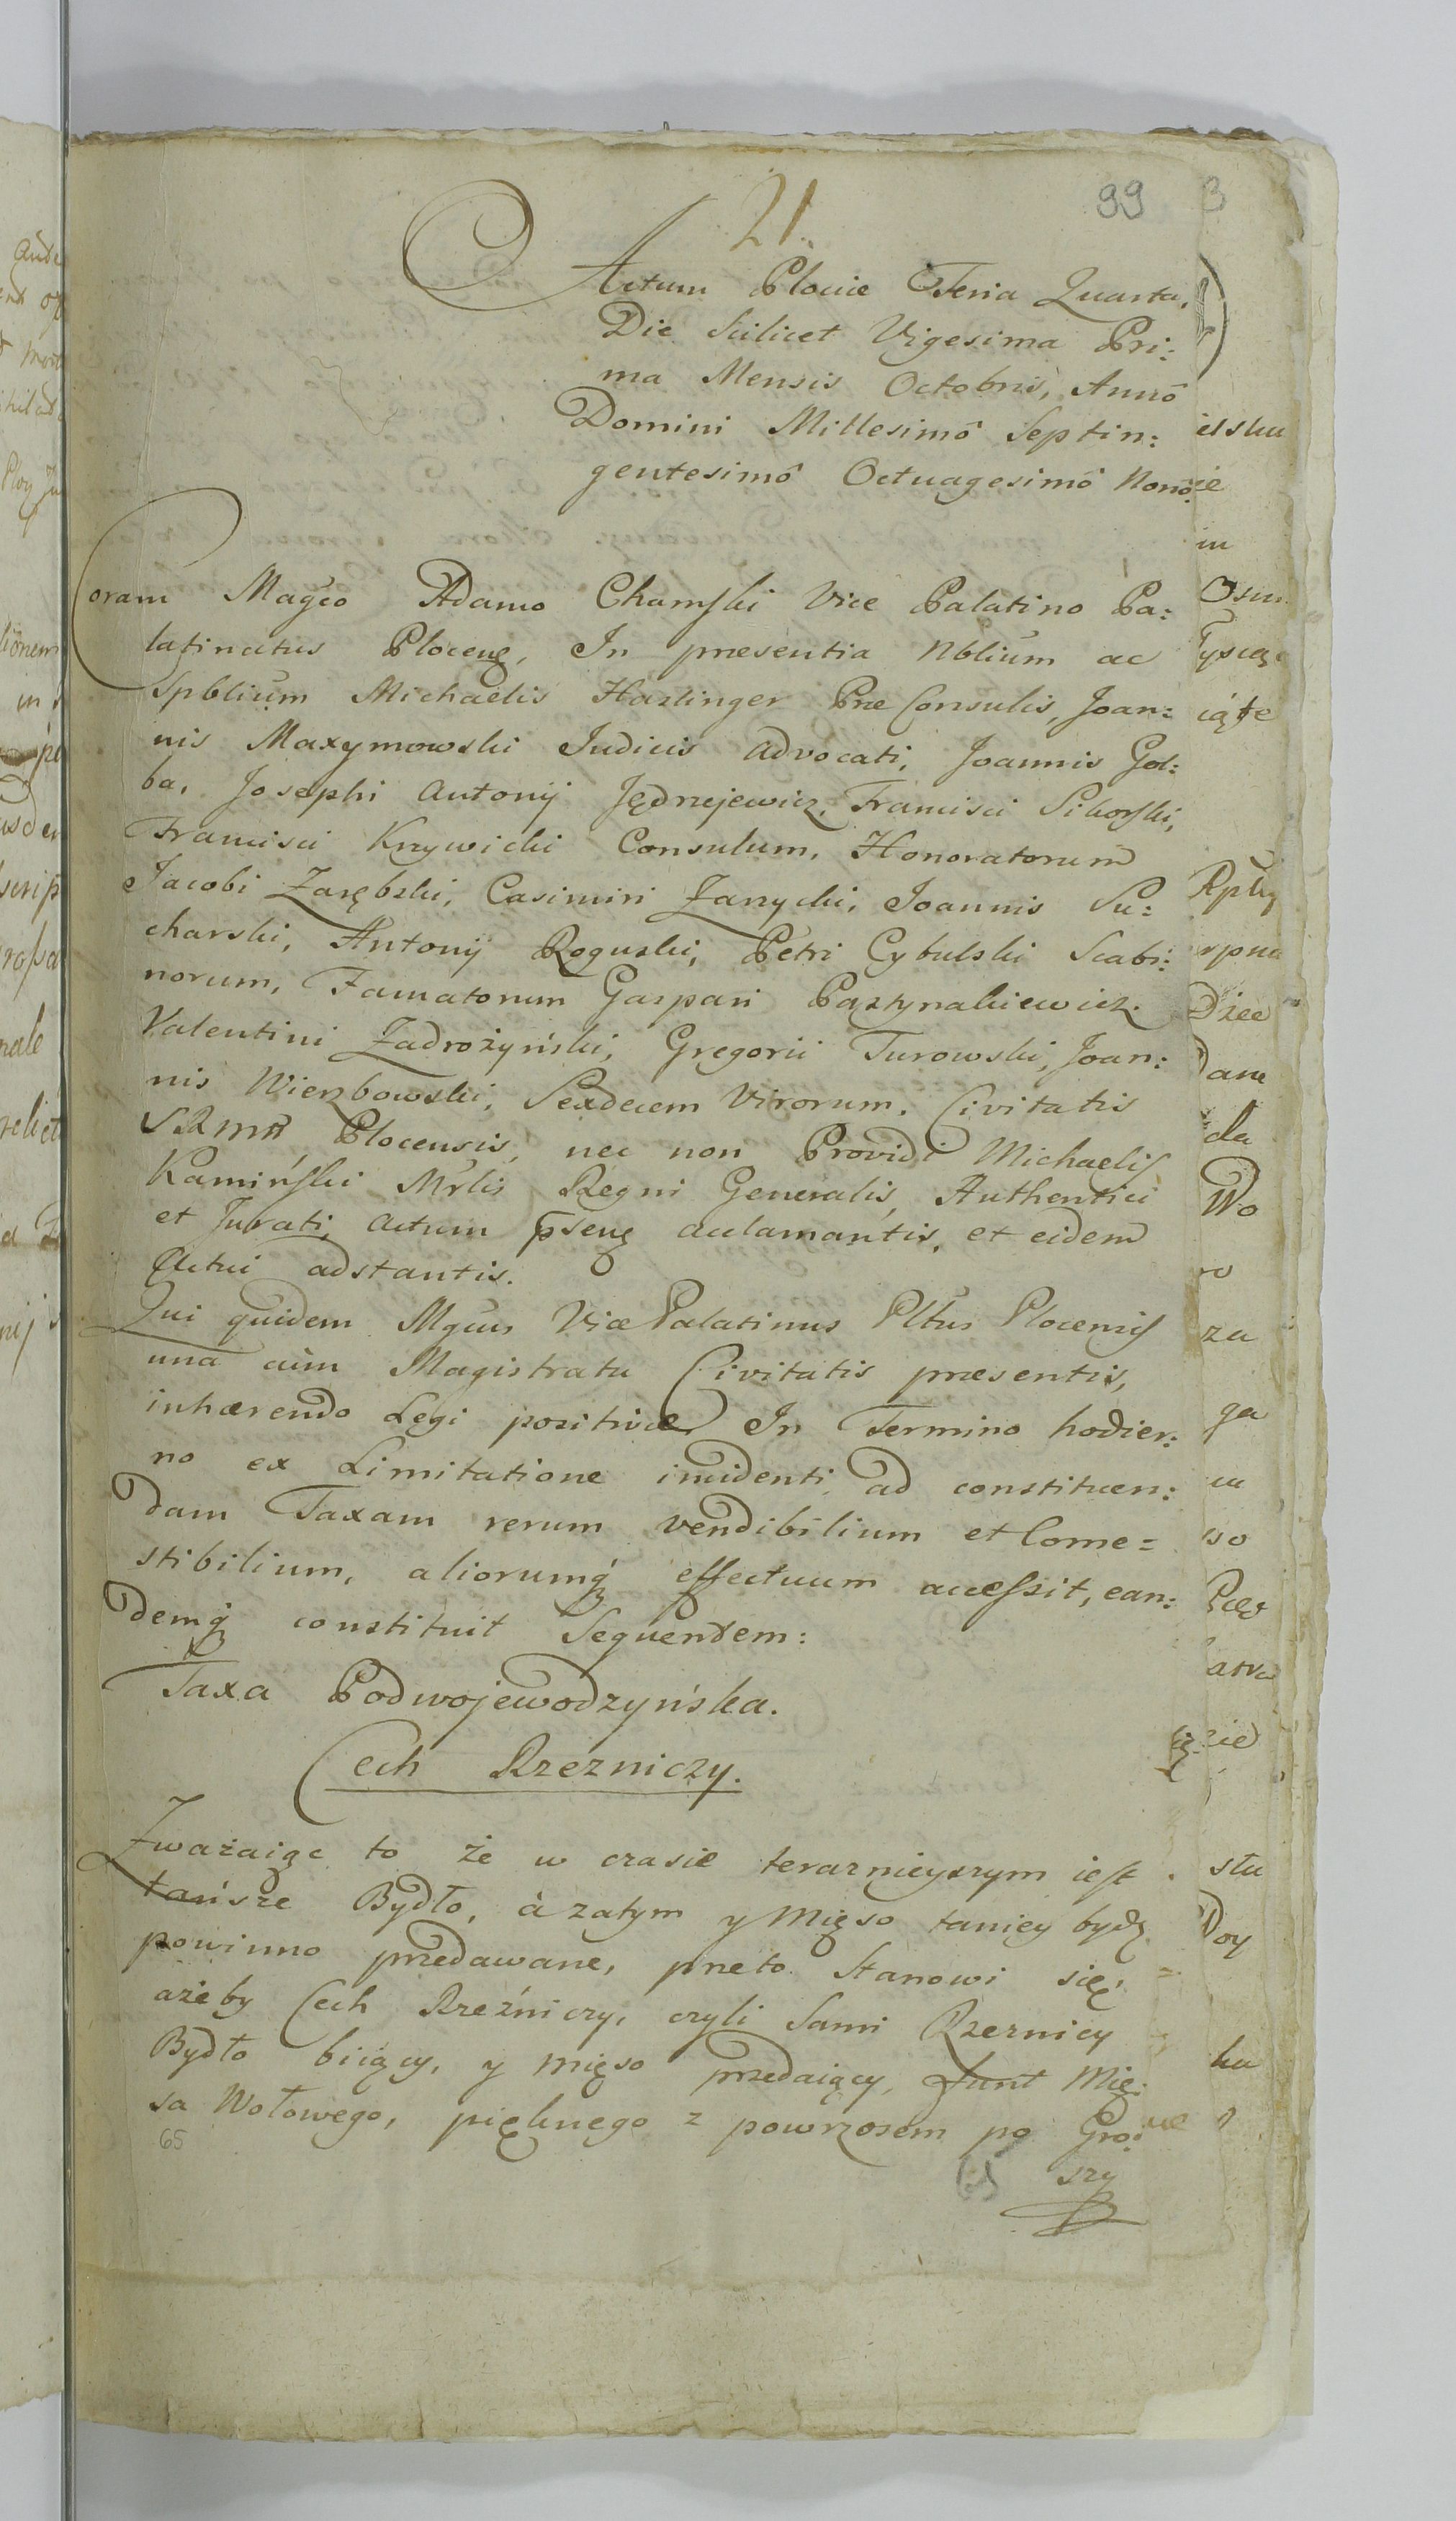 21.
99
Actum Plociæ Feria Quarta,
Die Scilicet Vigesima Pri:
ma Mensis Octobris, Annô
Domini Millesimô Septin:
gentesimô Octuagesimô Nonô.
Coram Magco Adamo Chamski Vice Palatino Pa:
latinatus Plocens, In præsentia Nblium ac
Spblium Michaelis Hazlinger Præ Consulis, Joan:
nis Maxymowski Judicis Advocati, Joannis Gol:
ba, Josephi Antonij Jędrzejewicz, Francisci Sikorski,
Francisci Krzywicki Consulum, Honoratorum
Jacobi Zarębski, Casimiri Zarzycki, Joannis Su:
charski, Antonij Roguski, Petri Cybulski Scabi:
norum, Famatorum Gaspari Pasztynakiewicz.
Valentini Zadrożyński, Gregorii Turowski, Joan:
nis Wierzbowski, Sexdecem Virorum. Civitatis
SRMtis Plocensis, nec non Providi Michaelis
Kamiński Mrlis Regni Generalis, Authentici
et Jurati, Actum psens aclamantis, et eidem
Actui adstantis.
Qui quidem Mgcus Vice Palatinus Pltus Plocensis
una cum Magistratu Civitatis præsentis,
inhærendo Legi pozitivæ In Termino hodier:
no ex Limitatione incidenti ad constituen:
dam Taxam rerum vendibilium et Come=
stibilium, aliorumq effectuum accessit, ean:
demq constituit Sequentem:
Taxa Podwojewodzyńska.
Cech Rzezniczy.
Zważaiąc to że w czasie teraznieyszym iest
tańsze Bydło, à zatym y Mięso taniey bydź
powinno przedawane, przeto Stanowi się,
ażeby Cech Rzeźniczy, czyli Sami Rzeznicy
Bydło biiący, y mięso przedaiący, funt Mię:
sa Wołowego, pięknego z powrzosem po Gro:
szy
65